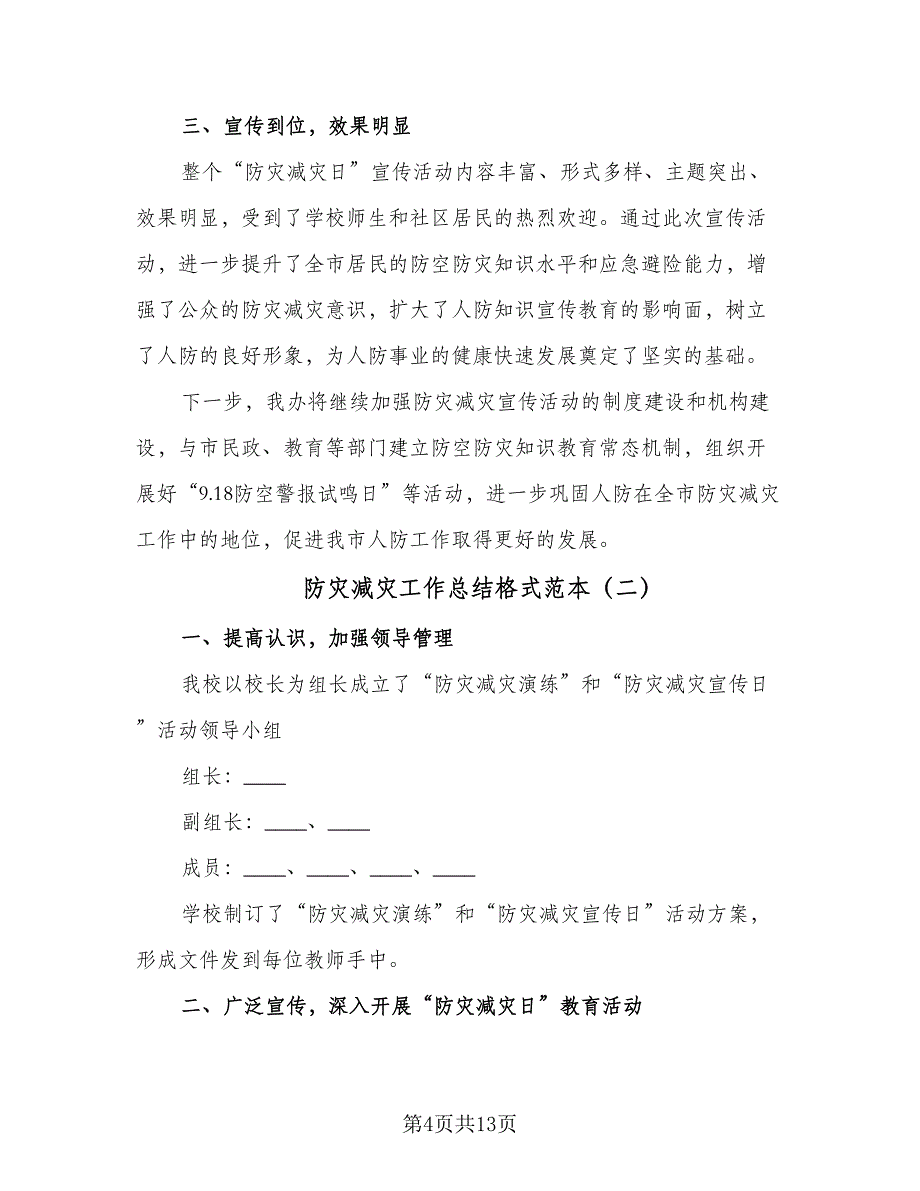 三、宣传到位，效果明显
整个“防灾减灾日”宣传活动内容丰富、形式多样、主题突出、
效果明显，受到了学校师生和社区居民的热烈欢迎。通过此次宣传活
动，进一步提升了全市居民的防空防灾知识水平和应急避险能力，增
强了公众的防灾减灾意识，扩大了人防知识宣传教育的影响面，树立
了人防的良好形象，为人防事业的健康快速发展奠定了坚实的基础。
下一步，我办将继续加强防灾减灾宣传活动的制度建设和机构建
设，与市民政、教育等部门建立防空防灾知识教育常态机制，组织开
展好“9.18防空警报试鸣日”等活动，进一步巩固人防在全市防灾减灾
工作中的地位，促进我市人防工作取得更好的发展。
防灾减灾工作总结格式范本（二）
一、提高认识，加强领导管理
我校以校长为组长成立了“防灾减灾演练”和“防灾减灾宣传日
”活动领导小组
组长：____
副组长：____、____
成员：____、____、____、____
学校制订了“防灾减灾演练”和“防灾减灾宣传日”活动方案，
形成文件发到每位教师手中。
二、广泛宣传，深入开展“防灾减灾日”教育活动
第4页共13页